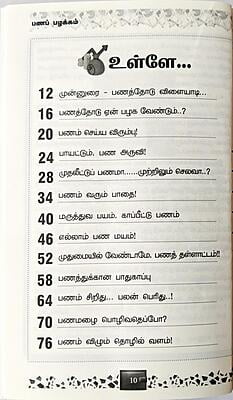 பணப் பழக்கம்
உள்ளே...
12 முன்னுரை - பணத்தோடு விளையாடி...
16 பணத்தோடு ஏன் பழக வேண்டும்..?
20 பணம் செய்ய விரும்பு!
24 பாயட்டும், பண அருவி!
28 முதலீட்டுப் பணமா......முற்றிலும் செலவா..?
34 பணம் வரும் பாதை!
40 மருத்துவ பயம், காப்பீட்டு பணம்
46 எல்லாம் பண மயம்!
52 முதுமையில் வேண்டாமே, பணத் தள்ளாட்டம்!!
58 பணத்துக்கான பாதுகாப்பு
64 பணம் சிறிது... பலன் பெரிது..!
70 பணமழை பொழிவதெப்போ?
76 பணம் விழும் தொழில் வளம்!
10